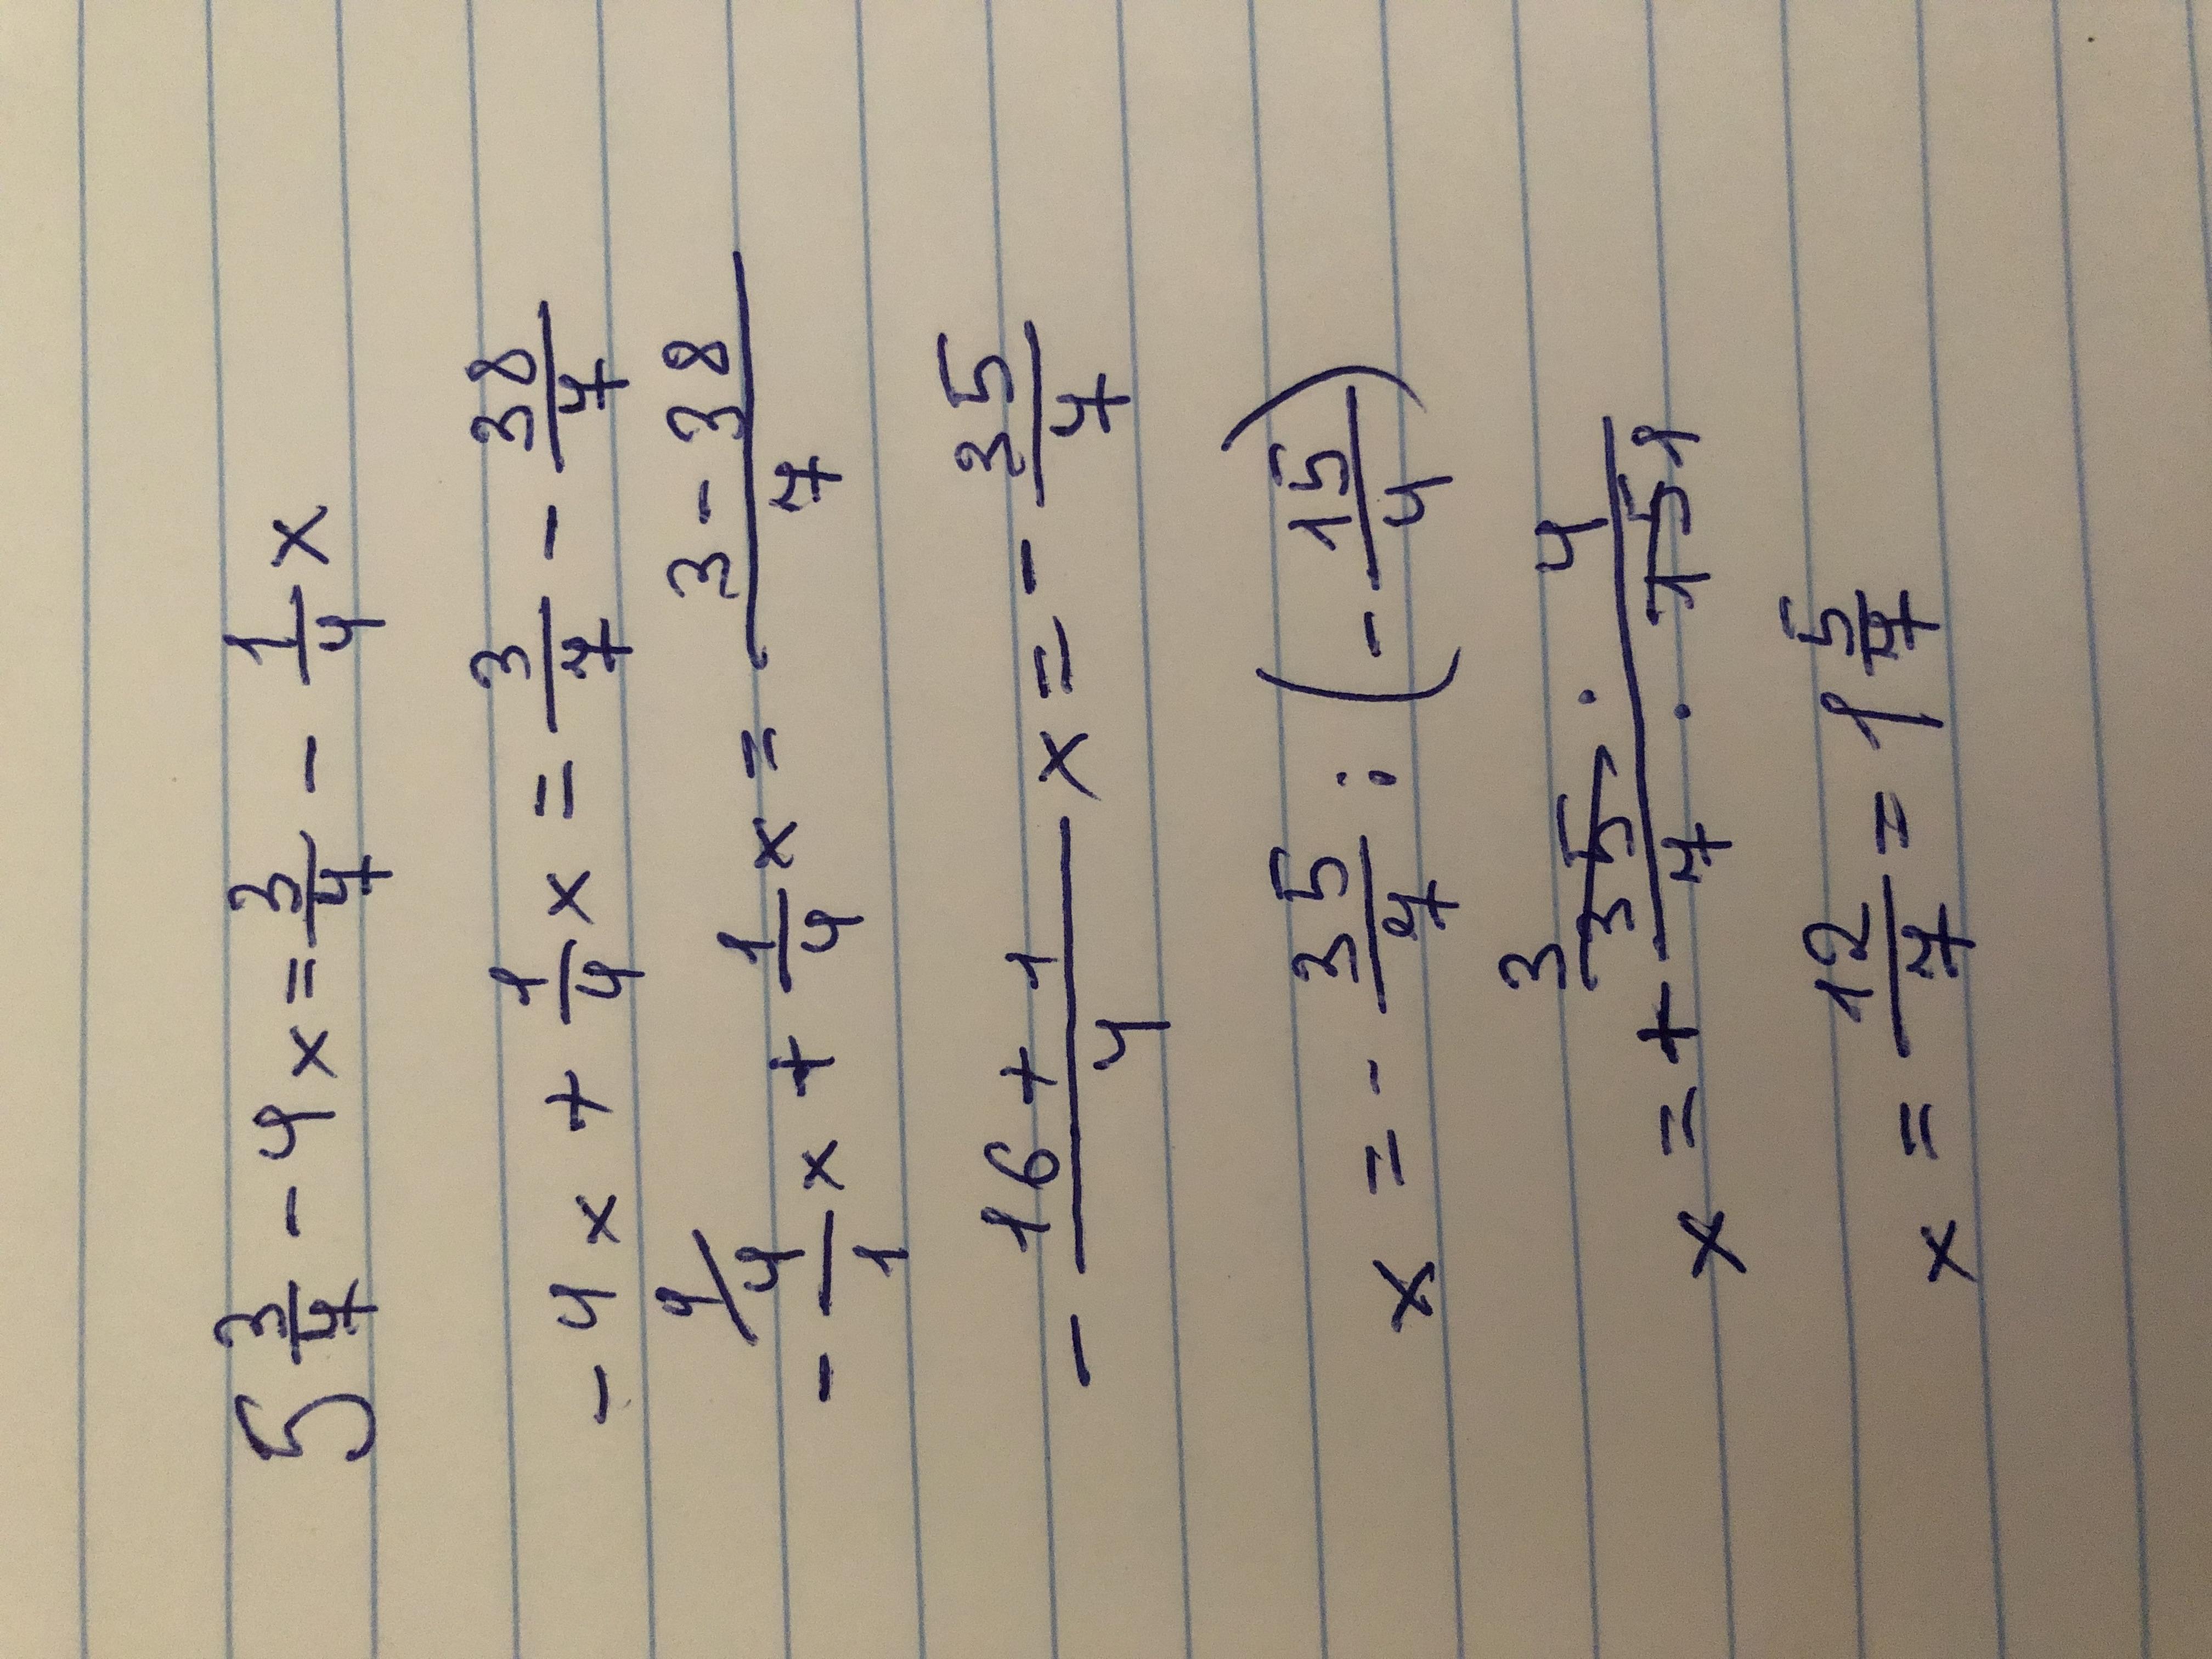 5 3/7 - 4x = 3/7 - 1/4 x
-4x + 1/4 x = 3/7 - 38/7
- 4/ 4/1 x + 1/4 x = (3 - 38)/7
- (16 + 1)/4 x = - 35/7
x = - 35/7 : (- 15/4)
x = + (3 35 · 4)/(7 · 15 1)
x = 12/7 = 1 5/7